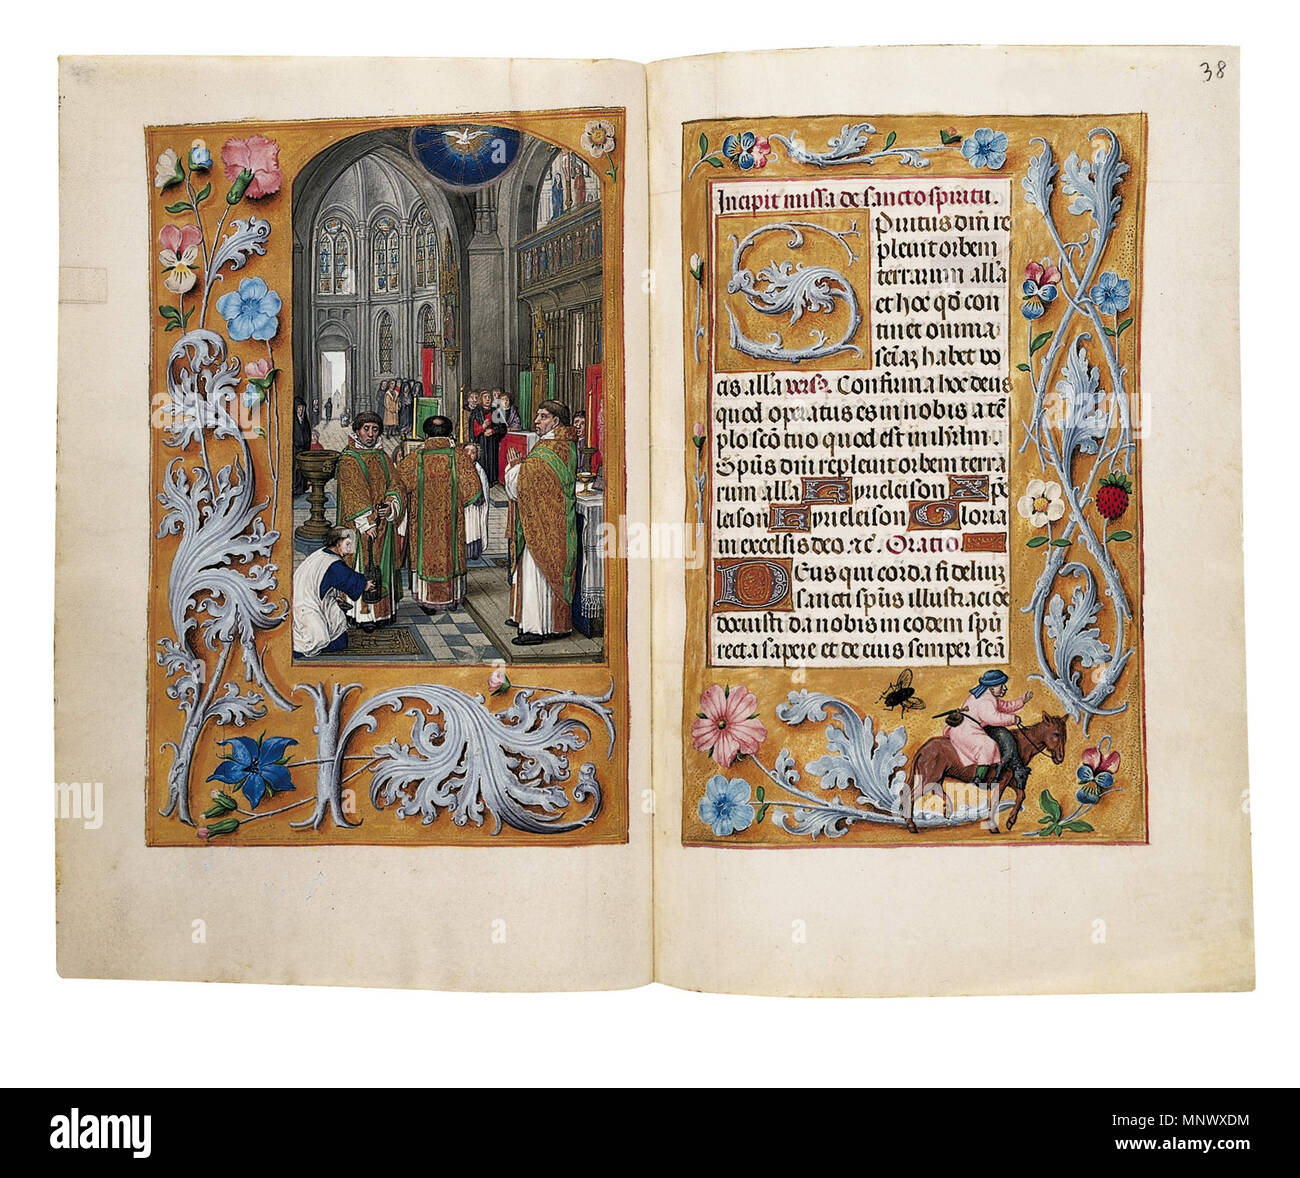 38
Incipit missa de sancto spiritu.
Piritus dm̄ re
pleuit orbem
terrarum alla
et hoc qd̄ con
tinet omnia
scīaz habet vo
cis alla vers9. Confirma hoc deus
quod operatus es in nobis a tē
plo scō tuo quod est in ihrlm̄
Spūs dm̄ repleuit orbem terra
rum alla Kyrieleison Xpe
leison Kyrieleison Gloria
in excelsis deo. &c̄. Oratio
Deus qui corda fideliuz
sancti spūs illustracioē
docuisti da nobis in eodem spū
recta sapere et de eius semper scā
alamy
alamy
alamy
Image ID: MNWXDM
www.alamy.com